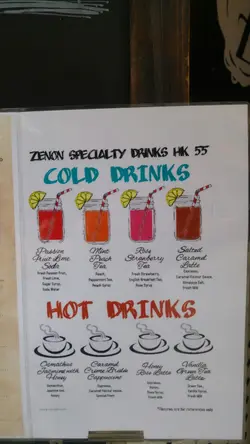 ZENON SPECIALTY DRINKS HK 55
COLD DRINKS
Passion
Fruit Lime
Soda
Fresh Passion Fruit,
Fresh Lime,
Sugar Syrup,
Soda Water
Mint
Peach
Tea
Peach,
Peppermint Tea,
Peach Syrup
Rose
Strawberry
Tea
Fresh Strawberry,
English Breakfast Tea,
Rose Syrup
Salted
Caramel
Latte
Espresso,
Caramel Flavour Sauce
Himalaya Salt,
Fresh Milk
HOT DRINKS
Osmanthus
Jasmine with
Honey
Osmanthus,
Jasmine tea,
Honey
Caramel
Creme Brulee
Cappuccino
Espresso,
Caramel Flavour Sauce
Honey
Rose Latte
Espresso,
Honey,
Rose Syrup,
Fresh Milk
Vanilla
Green Tea
Latte
Green Tea,
Vanilla Syrup,
Fresh Milk